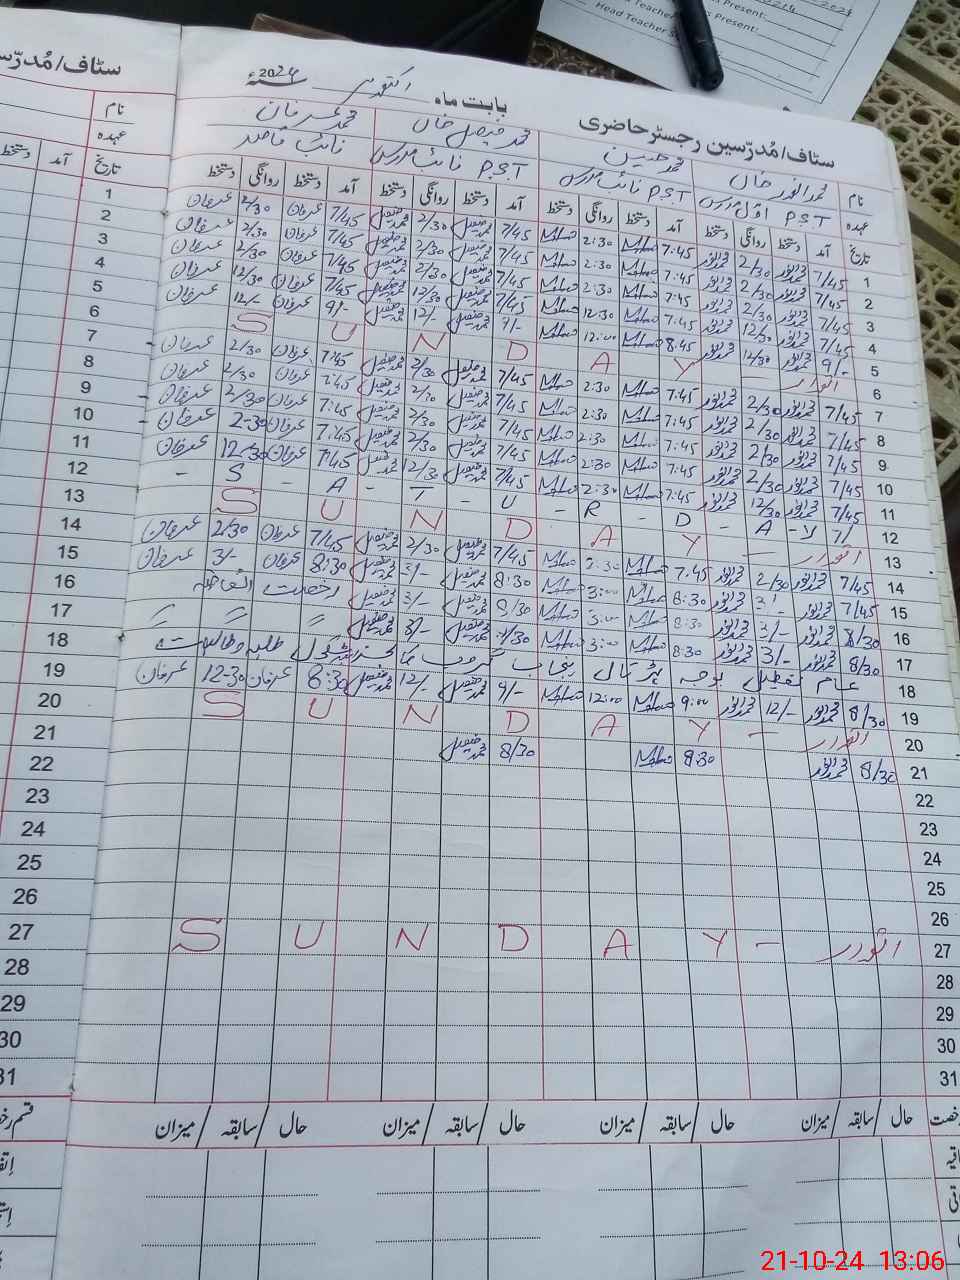 Head Teacher
Present:
Present:
سٹاف/مُدرّسین رجسٹر حاضری بابت ماہ اکتوبر 2024ء
سٹاف/مُدرّسین
نام محمد انور خان محمد حسین محمد فیصل خان محمد عرفان
عہدہ P.S.T اول مدرس P.S.T نائب مدرس P.S.T نائب مدرس نائب قاصد
تاریخ آمد دستخط روانگی دستخط آمد دستخط روانگی دستخط آمد دستخط روانگی دستخط آمد دستخط روانگی دستخط
نام
عہدہ
تاریخ آمد دستخط
1 7/45 محمد انور 2/30 محمد انور 7:45 2:30 7/45 محمد فیصل 2/30 محمد فیصل 7/45 عرفان 2/30 عرفان 1
2 7/45 محمد انور 2/30 محمد انور 7:45 2:30 7/45 محمد فیصل 2/30 محمد فیصل 7/45 عرفان 2/30 عرفان 2
3 7/45 محمد انور 2/30 محمد انور 7:45 2:30 7/45 محمد فیصل 2/30 محمد فیصل 7/45 عرفان 2/30 عرفان 3
4 7/45 محمد انور 12/30 محمد انور 7:45 12:30 7/45 محمد فیصل 12/30 محمد فیصل 7/45 عرفان 12/30 عرفان 4
5 9/- محمد انور 12/30 محمد انور 8:45 12:00 9/- محمد فیصل 12/- محمد فیصل 9/- عرفان 12/- عرفان 5
6 S U N D A Y - اتوار 6
7 7/45 محمد انور 2/30 محمد انور 7:45 2:30 7/45 محمد فیصل 2/30 محمد فیصل 7:45 عرفان 2/30 عرفان 7
8 7/45 محمد انور 2/30 محمد انور 7:45 2:30 7/45 محمد فیصل 2/30 محمد فیصل 7:45 عرفان 2/30 عرفان 8
9 7/45 محمد انور 2/30 محمد انور 7:45 2:30 7/45 محمد فیصل 2/30 محمد فیصل 7:45 عرفان 2/30 عرفان 9
10 7/45 محمد انور 2/30 محمد انور 7:45 2:30 7/45 محمد فیصل 2/30 محمد فیصل 7:45 عرفان 2-30 عرفان 10
11 7/45 محمد انور 12/30 محمد انور 7:45 2:30 7/45 محمد فیصل 12/30 محمد فیصل 7:45 عرفان 12-30 عرفان 11
12 - S - A - T - U - R - D - A - Y 12
13 S U N D A Y - اتوار 13
14 7/45 محمد انور 2/30 محمد انور 7:45 2:30 7/45 محمد فیصل 2/30 محمد فیصل 7/45 عرفان 2/30 عرفان 14
15 7/45 محمد انور 3/- محمد انور 8:30 3:00 8:30 محمد فیصل 3/- محمد فیصل 8:30 عرفان 3/- عرفان 15
16 8/30 محمد انور 3/- محمد انور 8:30 3:00 8/30 محمد فیصل 3/- محمد فیصل رخصت اتفاقیہ 16
17 8/30 محمد انور 3/- محمد انور 8:30 3:00 محمد فیصل 3/- محمد فیصل 〃 〃 〃 17
18 عام تعطیل بوجہ ہڑتال پنجاب گروپ طلبہ و طالبات 18
19 8/30 محمد انور 12/- محمد انور 9:00 12:00 9/- محمد فیصل 12/- محمد فیصل 8:30 عرفان 12-30 عرفان 19
20 S U N D A Y - اتوار 20
21 8/30 محمد انور 8:30 8/30 محمد فیصل 21
22 22
23 23
24 24
25 25
26 26
27 S U N D A Y - اتوار 27
28 28
29 29
30 30
31 31
حال / سابقہ / میزان حال / سابقہ / میزان حال / سابقہ / میزان حال / سابقہ / میزان
21-10-24 13:06